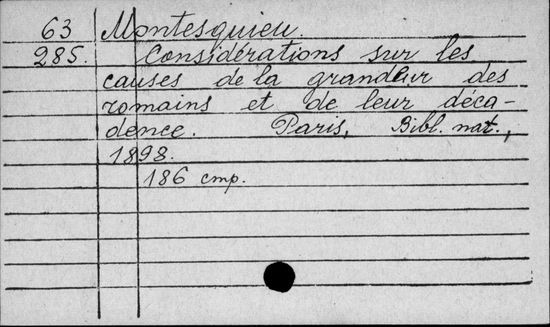 63 Montesquieu.
285. Considérations sur les
causes de la grandeur des
romains et de leur déca-
dence. Paris, Bibl. nat.,
1898.
186 cmp.